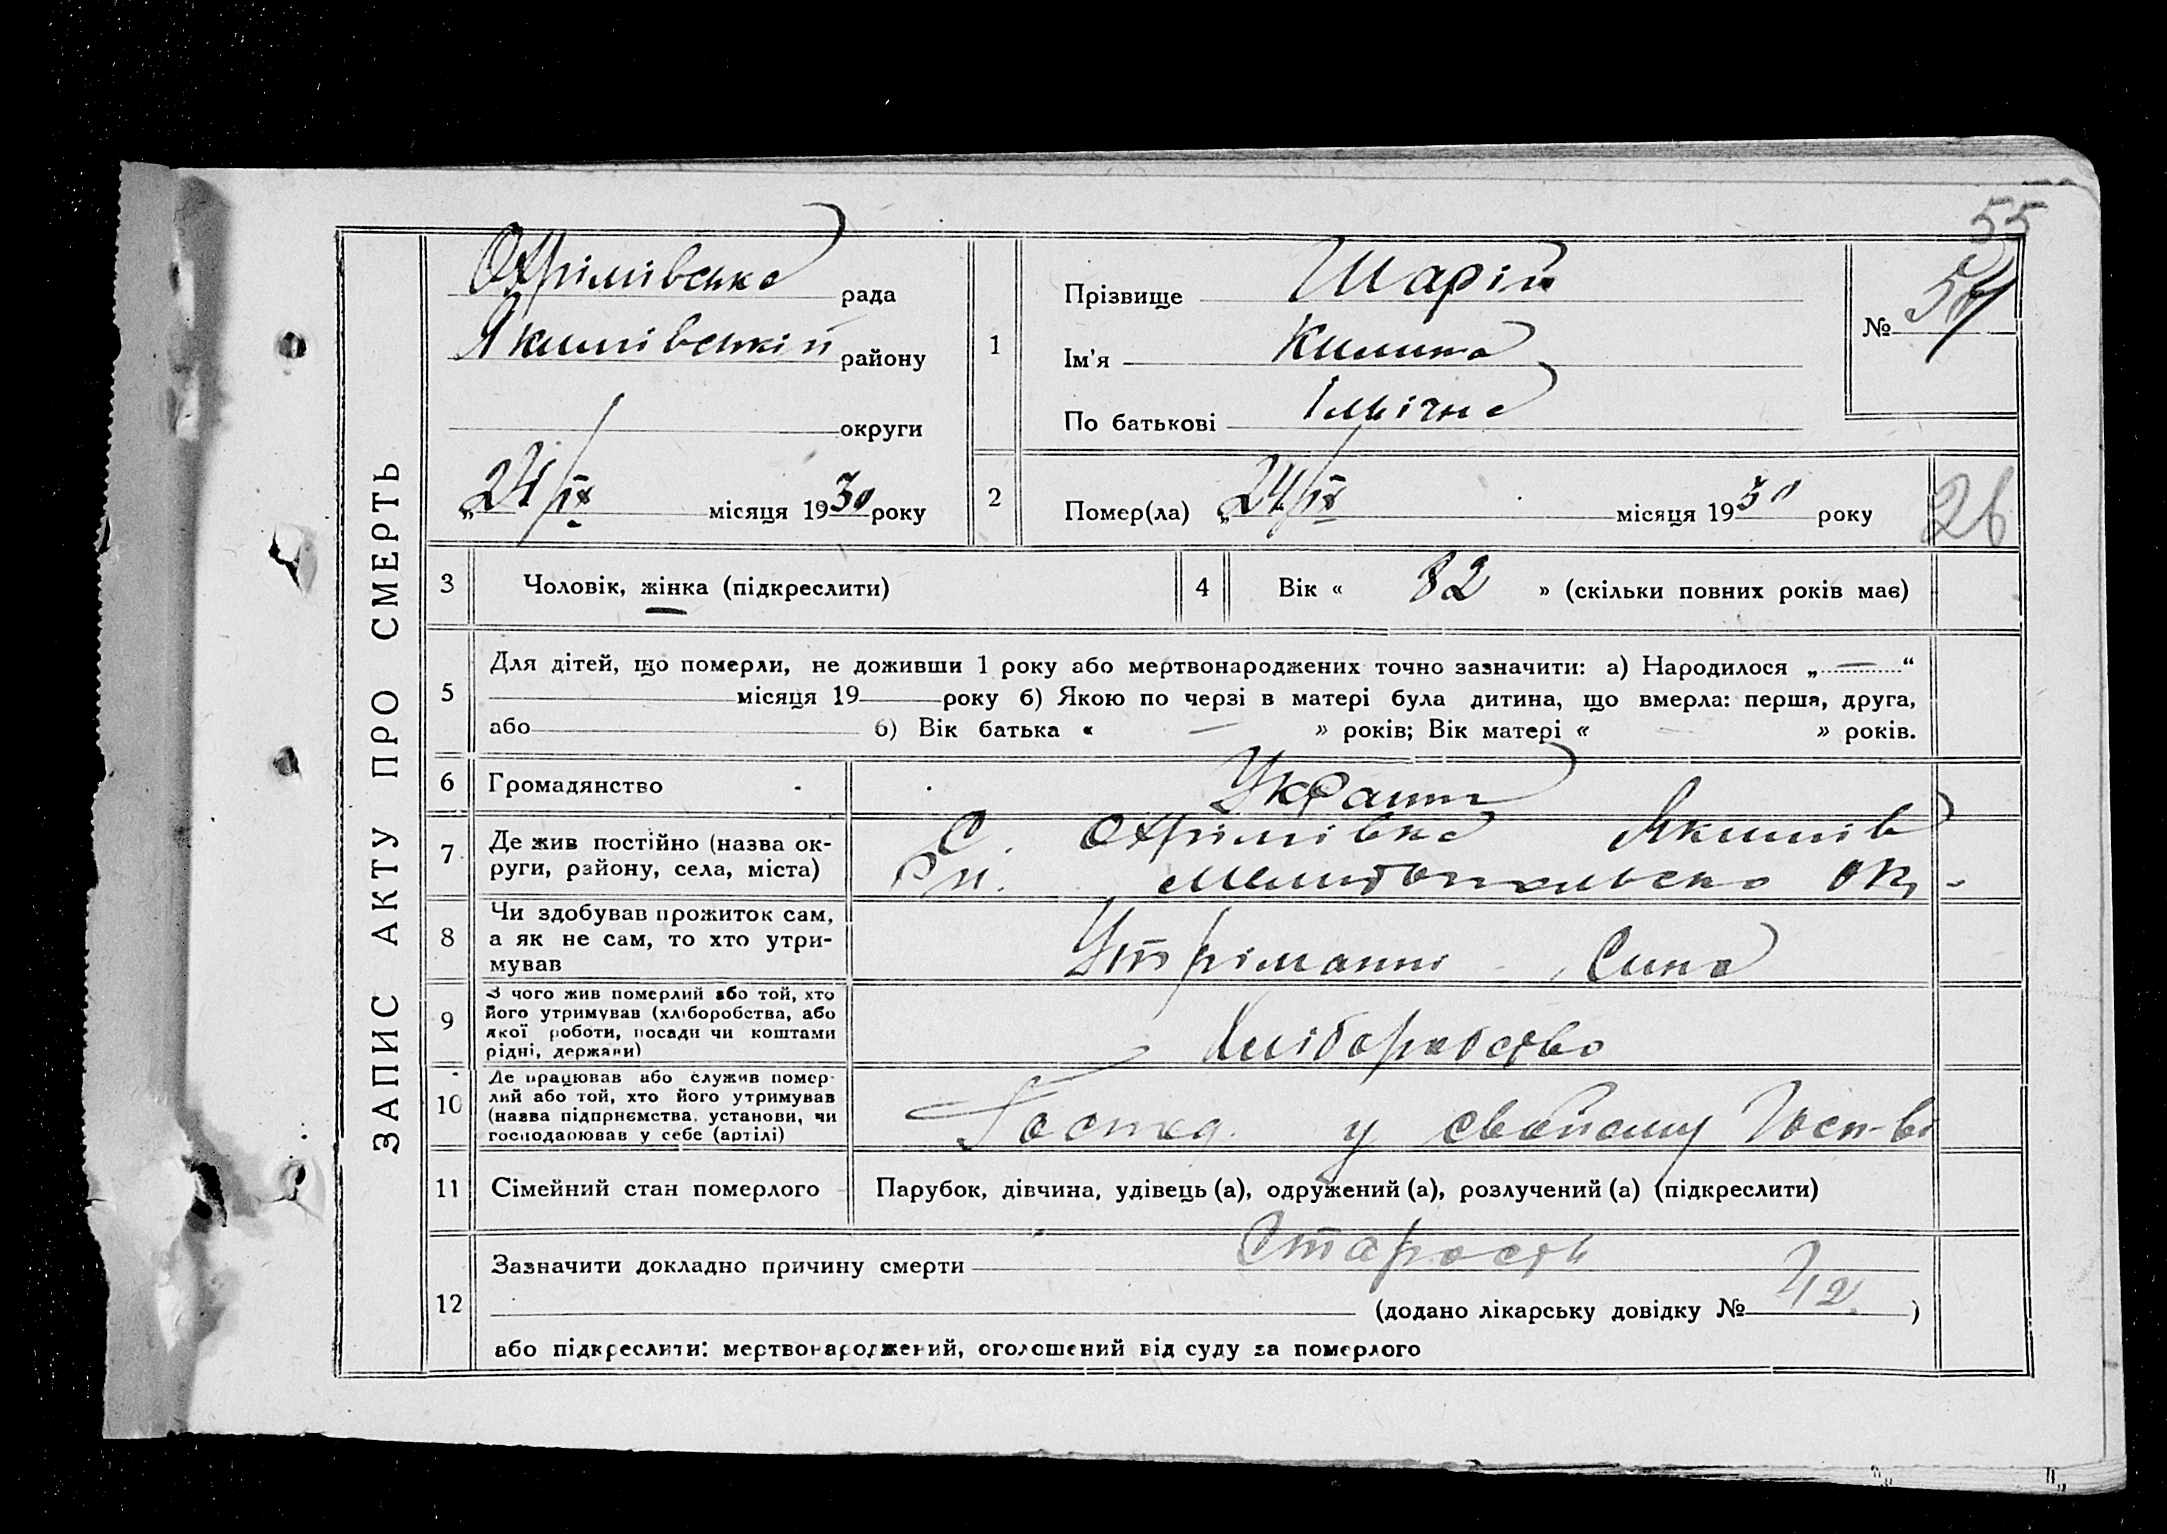 55
ЗАПИС АКТУ ПРО СМЕРТЬ
Охрімівська рада
Якимівський району
округи
„24/ІХ місяця 1930 року
1
Прізвище Шарій
Ім'я Килина
По батькові Іллічна
№ 54
2
Помер(ла) „24/ІХ місяця 1930 року
26
3 Чоловік, жінка (підкреслити)
4 Вік « 82 » (скільки повних років має)
5
Для дітей, що померли, не доживши 1 року або мертвонароджених точно зазначити: а) Народилося „—“
місяця 19 року б) Якою по черзі в матері була дитина, що вмерла: перша, друга,
або б) Вік батька « — » років; Вік матері « — » років.
6 Громадянство Україн
7 Де жив постійно (назва ок-
руги, району, села, міста)
С. Охрімівка Якимів
Рн. Мелитопольська ок.
8 Чи здобував прожиток сам,
а як не сам, то хто утри-
мував
Утріманні Сина
9 З чого жив померлий або той, хто
його утримував (хліборобства, або
якої роботи, посади чи коштами
рідні, держави)
Хліборобство
10 Де працював або служив помер-
лий або той, хто його утримував
(назва підприємства, установи, чи
господарював у себе (артілі)
Господ. у свойому Госп-ві
11 Сімейний стан померлого Парубок, дівчина, удівець (а), одружений (а), розлучений (а) (підкреслити)
12
Зазначити докладно причину смерти Старость
(додано лікарську довідку № 42)
або підкреслити: мертвонароджений, оголошений від суду за померлого